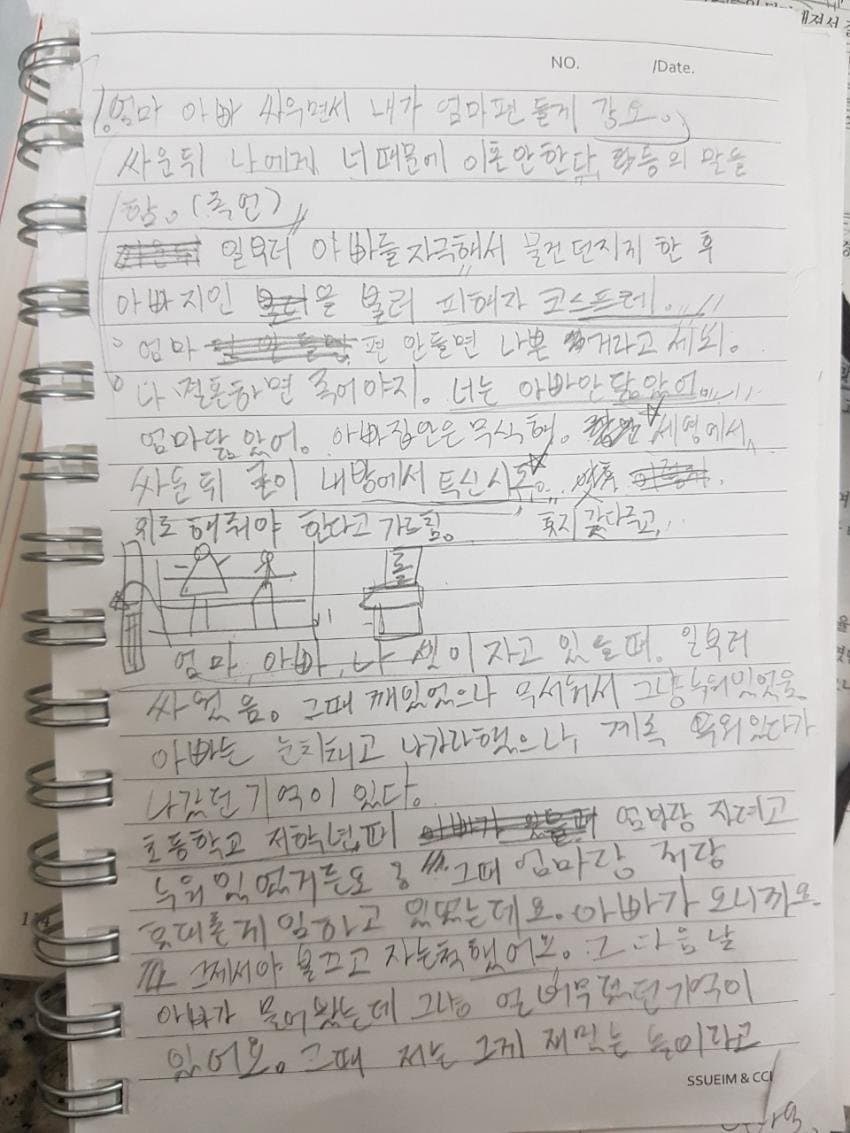 NO. /Date.
엄마 아빠 싸우면서 내가 엄마편 들게 강요.
싸운뒤 나에게 너 때문에 이혼안한다 등의 말들
함. (폭언)
일부러 아빠를 자극해서 물건 던지게 한 후
아빠 지인을 불러 피해자 코스프레.
엄마 편 안들면 나쁜 거라고 세뇌.
나 결혼하면 죽어야지. 너는 아빠안닮았어
엄마닮았어. 아빠집안은 무식해. 세명에서
싸운 뒤 굳이 내방에서
위로 해줘야 한다고 가르침. 휴지 갖다주고,
엄마, 아빠, 나 셋이 자고 있을때. 일부러
싸웠음. 그때 깨있었으나 무서워서 그냥 누워있었음
아빠는 눈치채고 나가라했으나 계속 누워있다가
나갔던 기억이 있다.
초등학교 저학년때 엄마랑 자려고
누워 있었거든요 그때 엄마랑 저랑
휴대폰게임하고 있었는데요. 아빠가 오니까요
그제서야 불끄고 자는척했어요. 그 다음날
아빠가 물어봤는데 그냥 얼버무렸던기억이
있어요. 그때 저는 그게 재밌는 놀이라고
SSUEIM & CCI